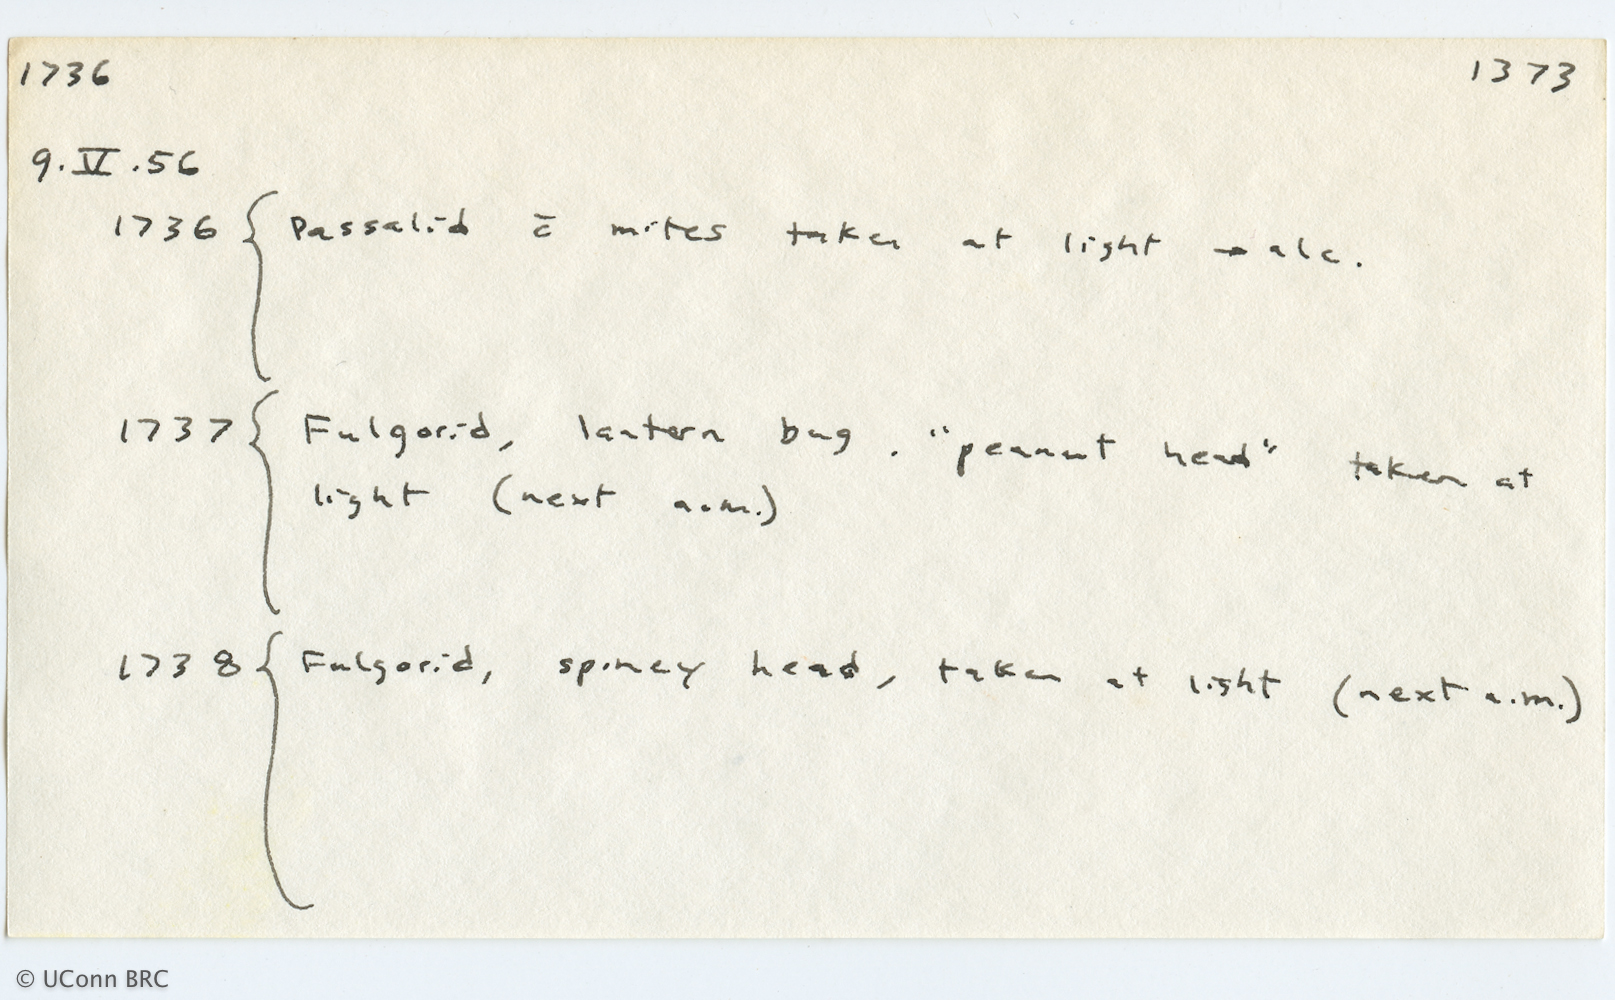 1736 1373
9.V.56
1736 { Passalid c̄ mites taken at light → alc.
1737 { Fulgorid, lantern bug. "peanut head" taken at
light (next a.m.)
1738 { Fulgorid, spiney head, taken at light (next a.m.)
© UConn BRC